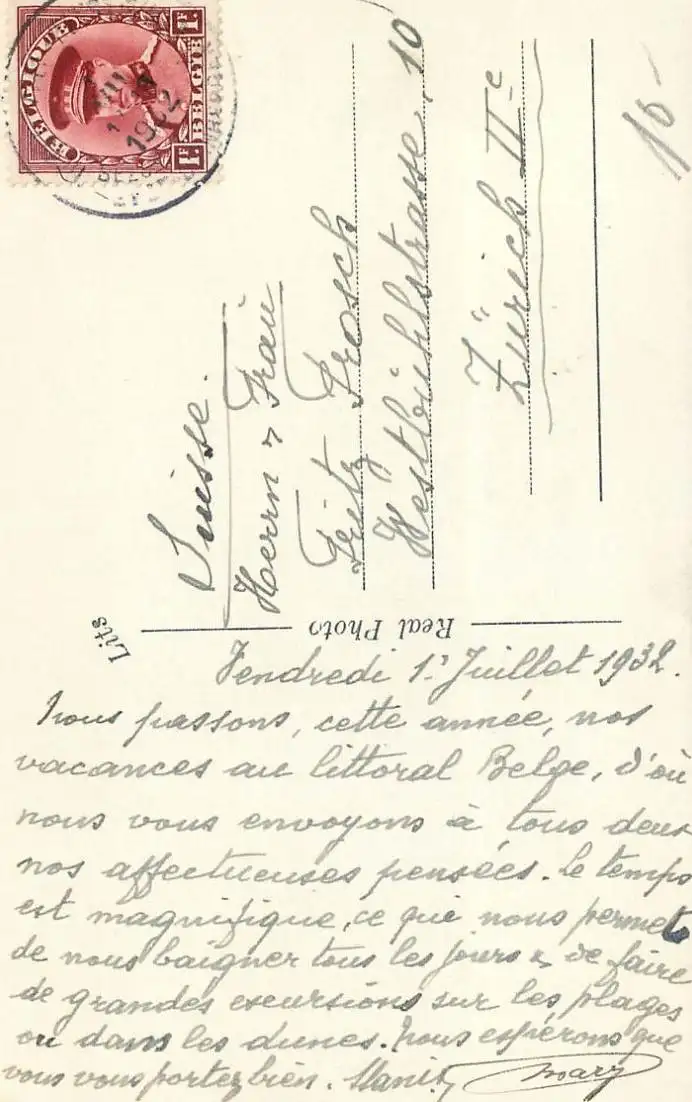 BELGIQUE BELGIE
1F 1F
1932
10-
Suisse.
Herrn & Frau
Fritz Frosch
Westbühlstrasse, 10
Zürich IIe
Real Photo
Lits
Vendredi 1r Juillet 1932.
Nous passons, cette année, nos
vacances au littoral Belge, d'où
nous vous envoyons à tous deux
nos affectueuses pensées. Le temps
est magnifique, ce qui nous permet
de nous baigner tous les jours & de faire
de grandes excursions sur les plages
ou dans les dunes. Nous espérons que
vous vous portez bien.